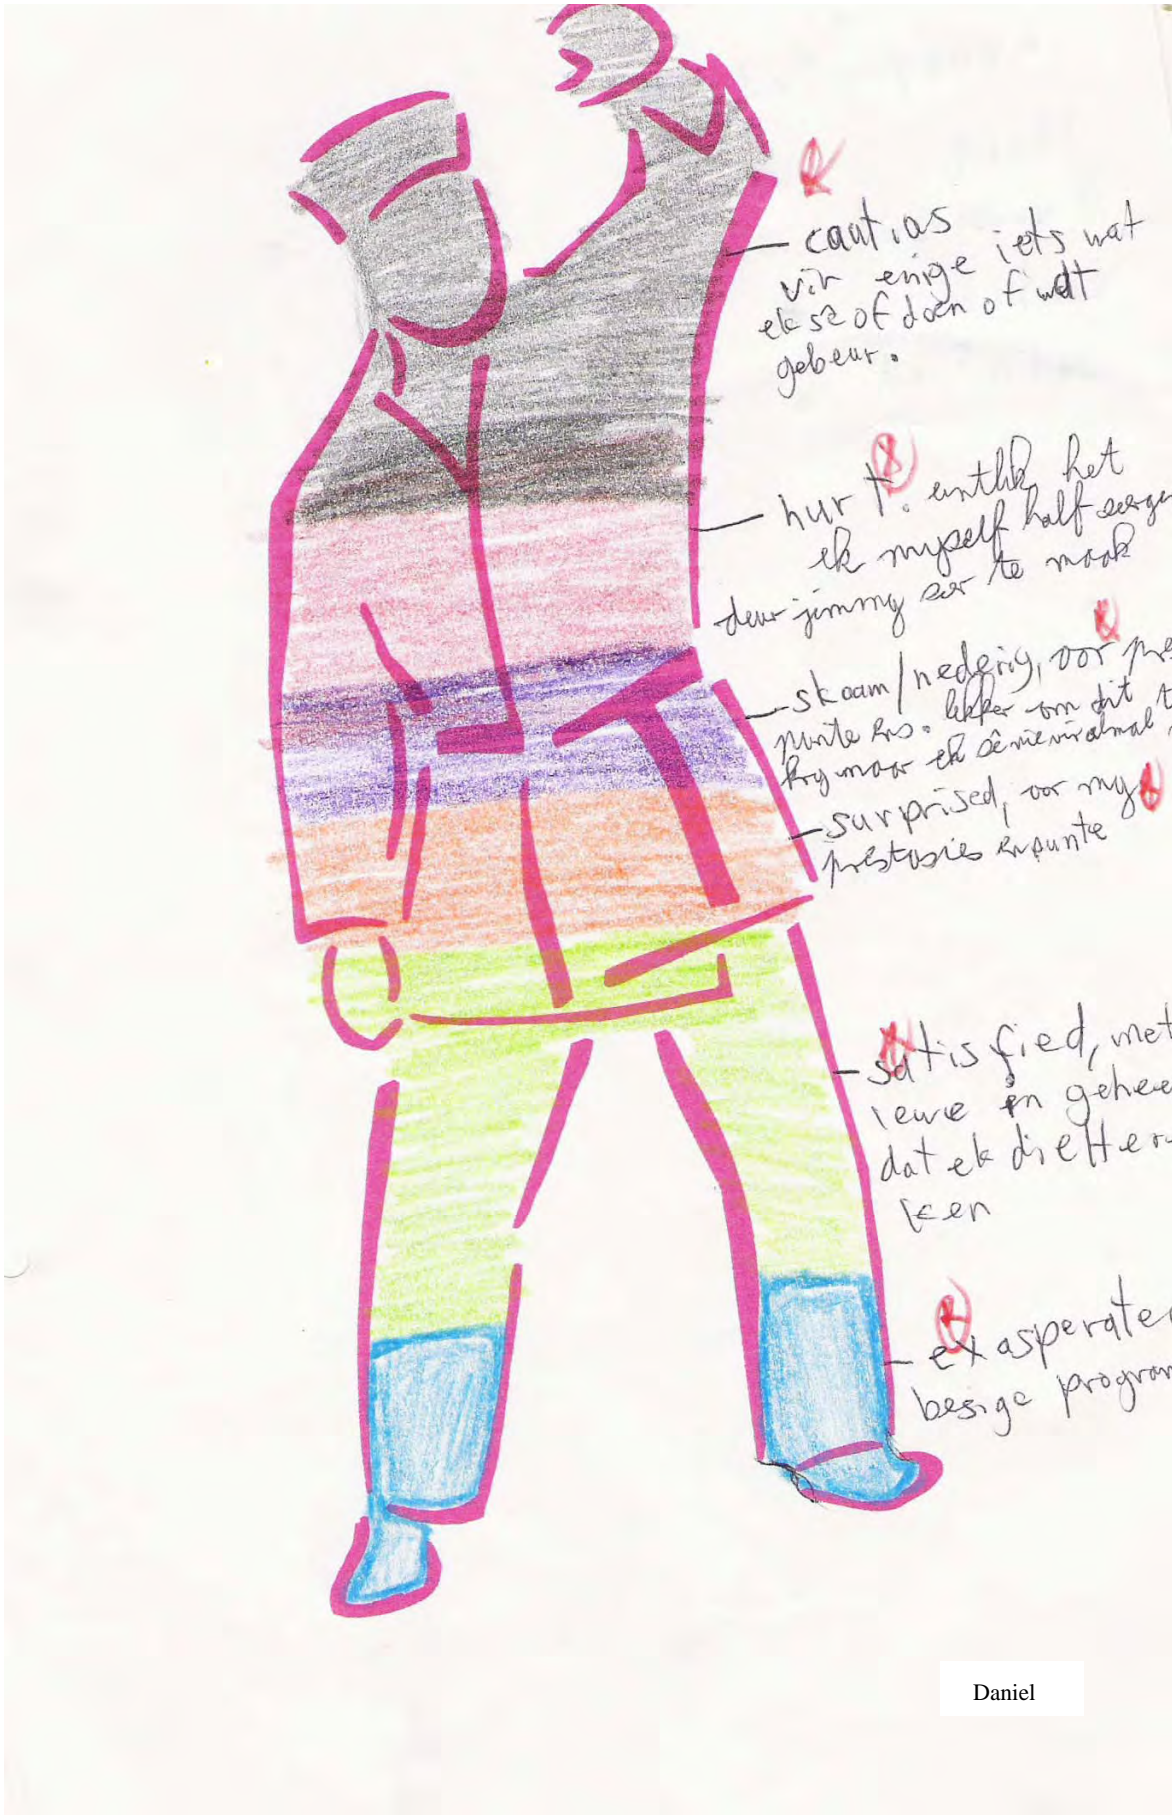 cautias
vir enige iets wat
ek sê of doen of wat
gebeur.
hurt. eintlik het
ek myself half seerge
deur jimmy seer te maak
skaam/nederig, oor pre
punte ens. lekker om dit
kry maar ek sê nie vir almal
surprised, oor my
prestasies en punte
satisfied, met
lewe in gehee
dat ek die
ken
exasperate
besige program
Daniel